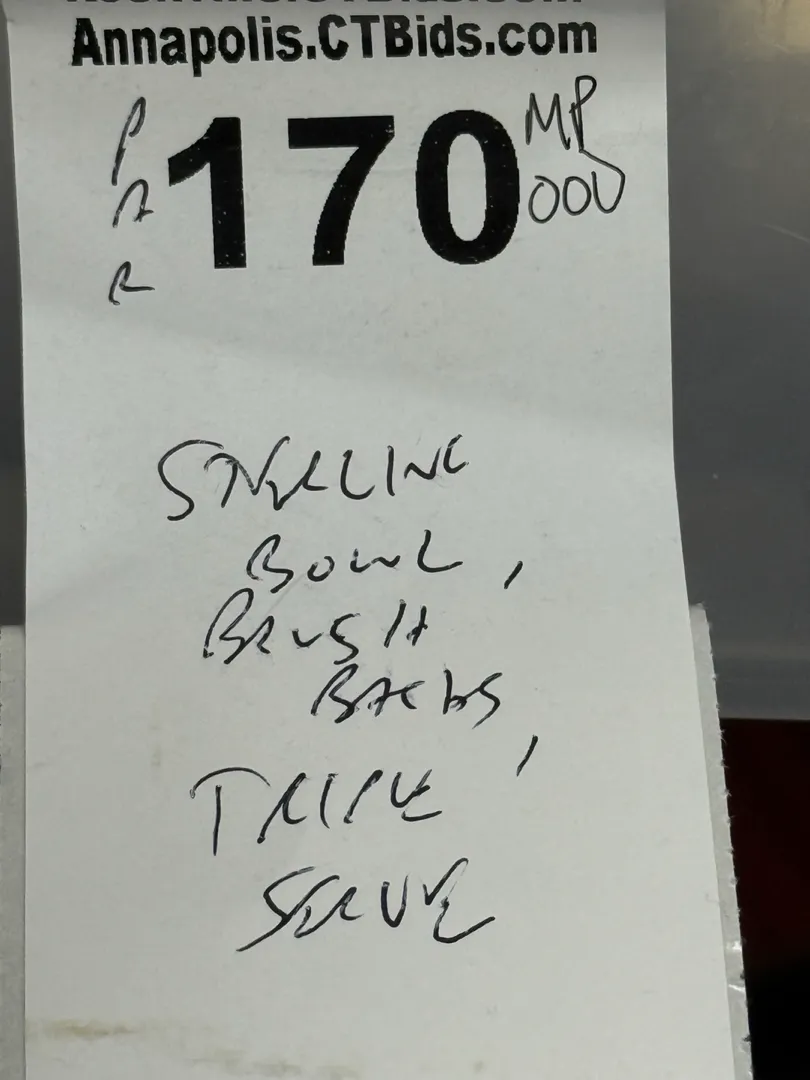 Annapolis.CTBids.com
PAR
170
MP
000
STERLING
BOWL,
BRUSH
BACKS,
TRIPLE
SERVE